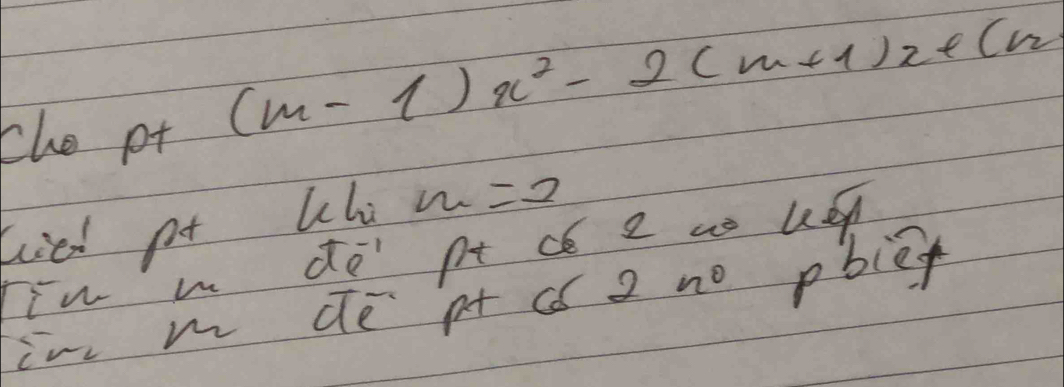 Cho pt (m - 1) x² - 2(m+1)x + (m
Giải pt khi m = 2
Tìm m để pt có 2 no kép
Tìm m để pt có 2 no pbiệt